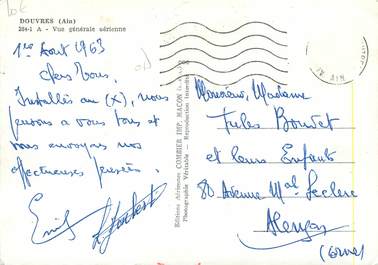 DOUVRES (Ain)
204-1 A - Vue générale aérienne
1er Aout 1963
chers Tous,
Installés au (X), nous
pensons a vous tous et
vous envoyons nos
affectueuses pensées.
Editions Aériennes COMBIER IMP. MACON
Photographie Véritable - Reproduction interdite
Monsieur, Madame
Jules Boudet
et leurs Enfants
80 Avenue Mal Leclerc
Alençon
(Orne)